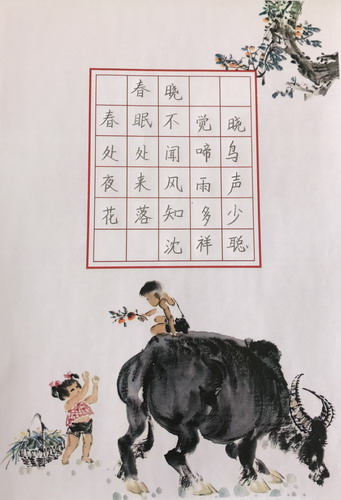 春晓
春眠不觉晓
处处闻啼鸟
夜来风雨声
花落知多少
沈祥聪